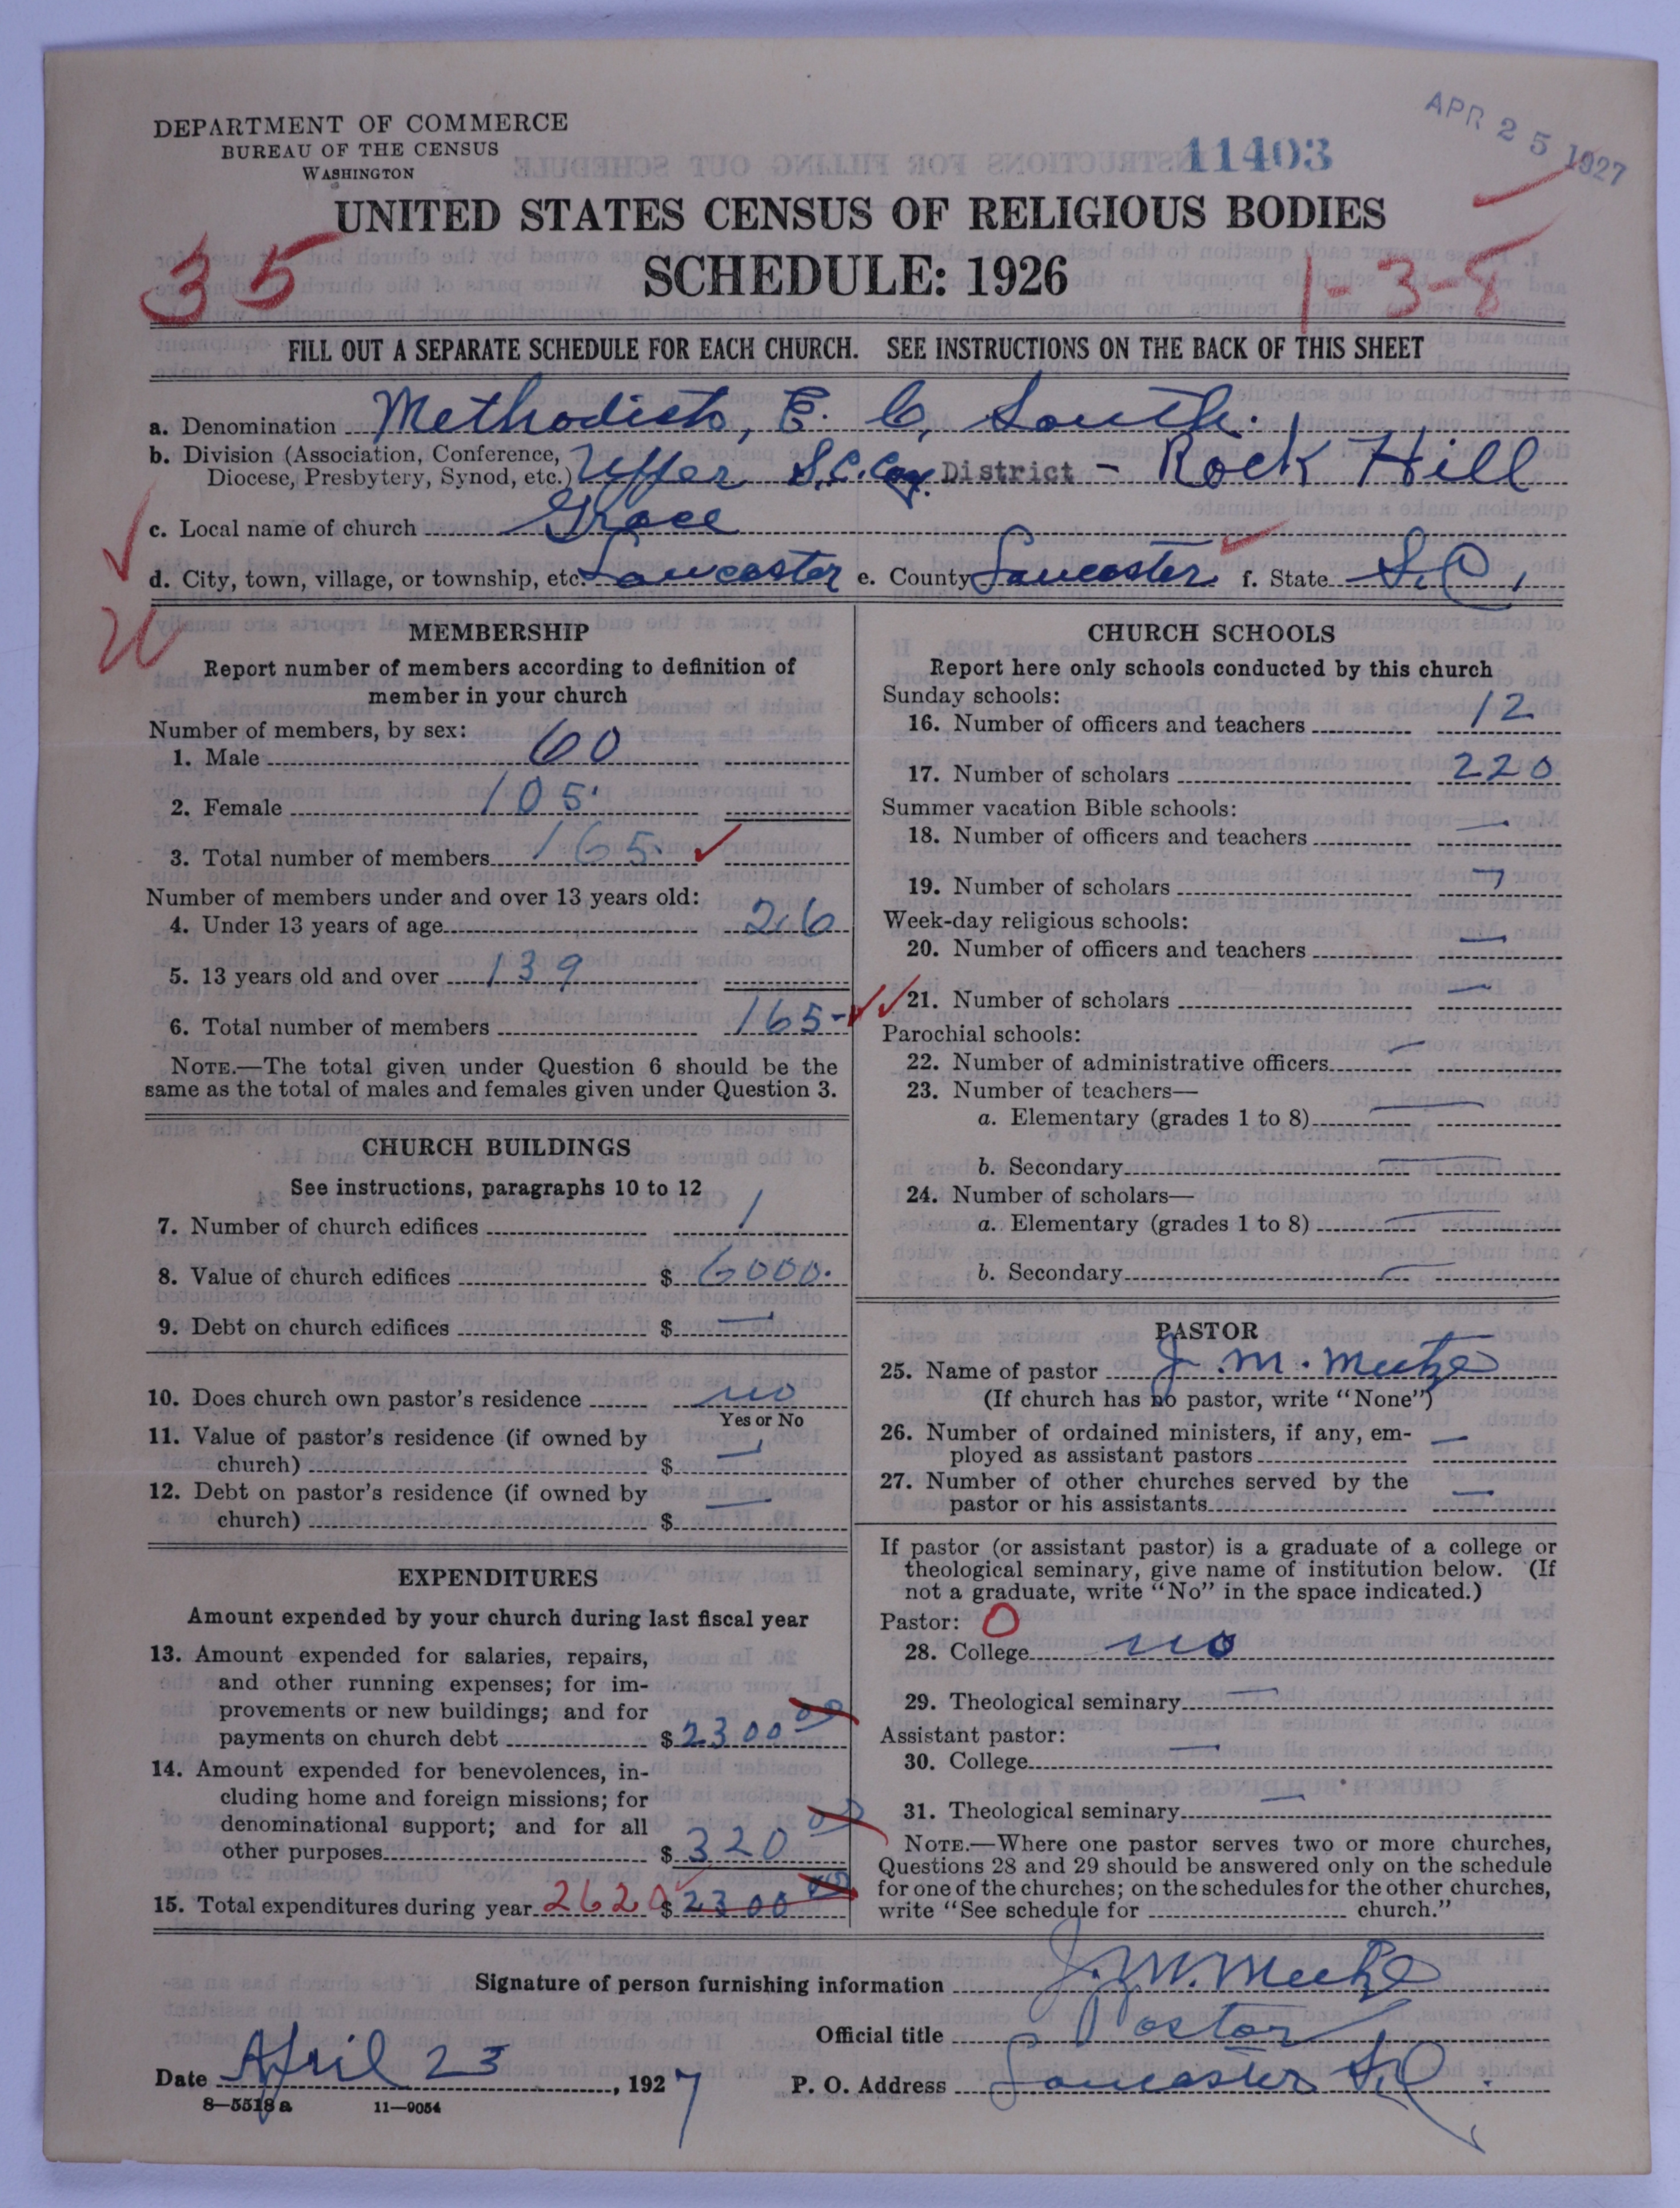 DEPARTMENT OF COMMERCE
BUREAU OF THE CENSUS
WASHINGTON
11403
APR 25 1927
UNITED STATES CENSUS OF RELIGIOUS BODIES
SCHEDULE: 1926
35
1-3-8
FILL OUT A SEPARATE SCHEDULE FOR EACH CHURCH. SEE INSTRUCTIONS ON THE BACK OF THIS SHEET
a. Denomination Methodist, E. C, South.
b. Division (Association, Conference, Diocese, Presbytery, Synod, etc.) Upper S.C. Con. District - Rock Hill
c. Local name of church Grace
d. City, town, village, or township, etc. Lancaster e. County Lancaster f. State S.C.
MEMBERSHIP
Report number of members according to definition of
member in your church
Number of members, by sex:
1. Male 60
2. Female 105
3. Total number of members 165
Number of members under and over 13 years old:
4. Under 13 years of age 26
5. 13 years old and over 139
6. Total number of members 165
NOTE.—The total given under Question 6 should be the
same as the total of males and females given under Question 3.
CHURCH BUILDINGS
See instructions, paragraphs 10 to 12
7. Number of church edifices 1
8. Value of church edifices $ 6000.
9. Debt on church edifices $ —
10. Does church own pastor's residence no
Yes or No
11. Value of pastor's residence (if owned by
church) $ —
12. Debt on pastor's residence (if owned by
church) $ —
EXPENDITURES
Amount expended by your church during last fiscal year
13. Amount expended for salaries, repairs,
and other running expenses; for im-
provements or new buildings; and for
payments on church debt $ 2300 00
14. Amount expended for benevolences, in-
cluding home and foreign missions; for
denominational support; and for all
other purposes $ 320 00
15. Total expenditures during year 2620 $ 2300 00
CHURCH SCHOOLS
Report here only schools conducted by this church
Sunday schools:
16. Number of officers and teachers 12
17. Number of scholars 220
Summer vacation Bible schools:
18. Number of officers and teachers —
19. Number of scholars —
Week-day religious schools:
20. Number of officers and teachers —
21. Number of scholars —
Parochial schools:
22. Number of administrative officers —
23. Number of teachers—
a. Elementary (grades 1 to 8) —
b. Secondary —
24. Number of scholars—
a. Elementary (grades 1 to 8) —
b. Secondary —
PASTOR
25. Name of pastor J. M. Meetze
(If church has no pastor, write "None")
26. Number of ordained ministers, if any, em-
ployed as assistant pastors —
27. Number of other churches served by the
pastor or his assistants —
If pastor (or assistant pastor) is a graduate of a college or
theological seminary, give name of institution below. (If
not a graduate, write "No" in the space indicated.)
Pastor: O
28. College no
29. Theological seminary —
Assistant pastor:
30. College —
31. Theological seminary —
NOTE.—Where one pastor serves two or more churches,
Questions 28 and 29 should be answered only on the schedule
for one of the churches; on the schedules for the other churches,
write "See schedule for church."
Signature of person furnishing information J. M. Meetze
Official title Pastor
Date April 23, 1927 P. O. Address Lancaster S.C.
8—5518a 11—9054